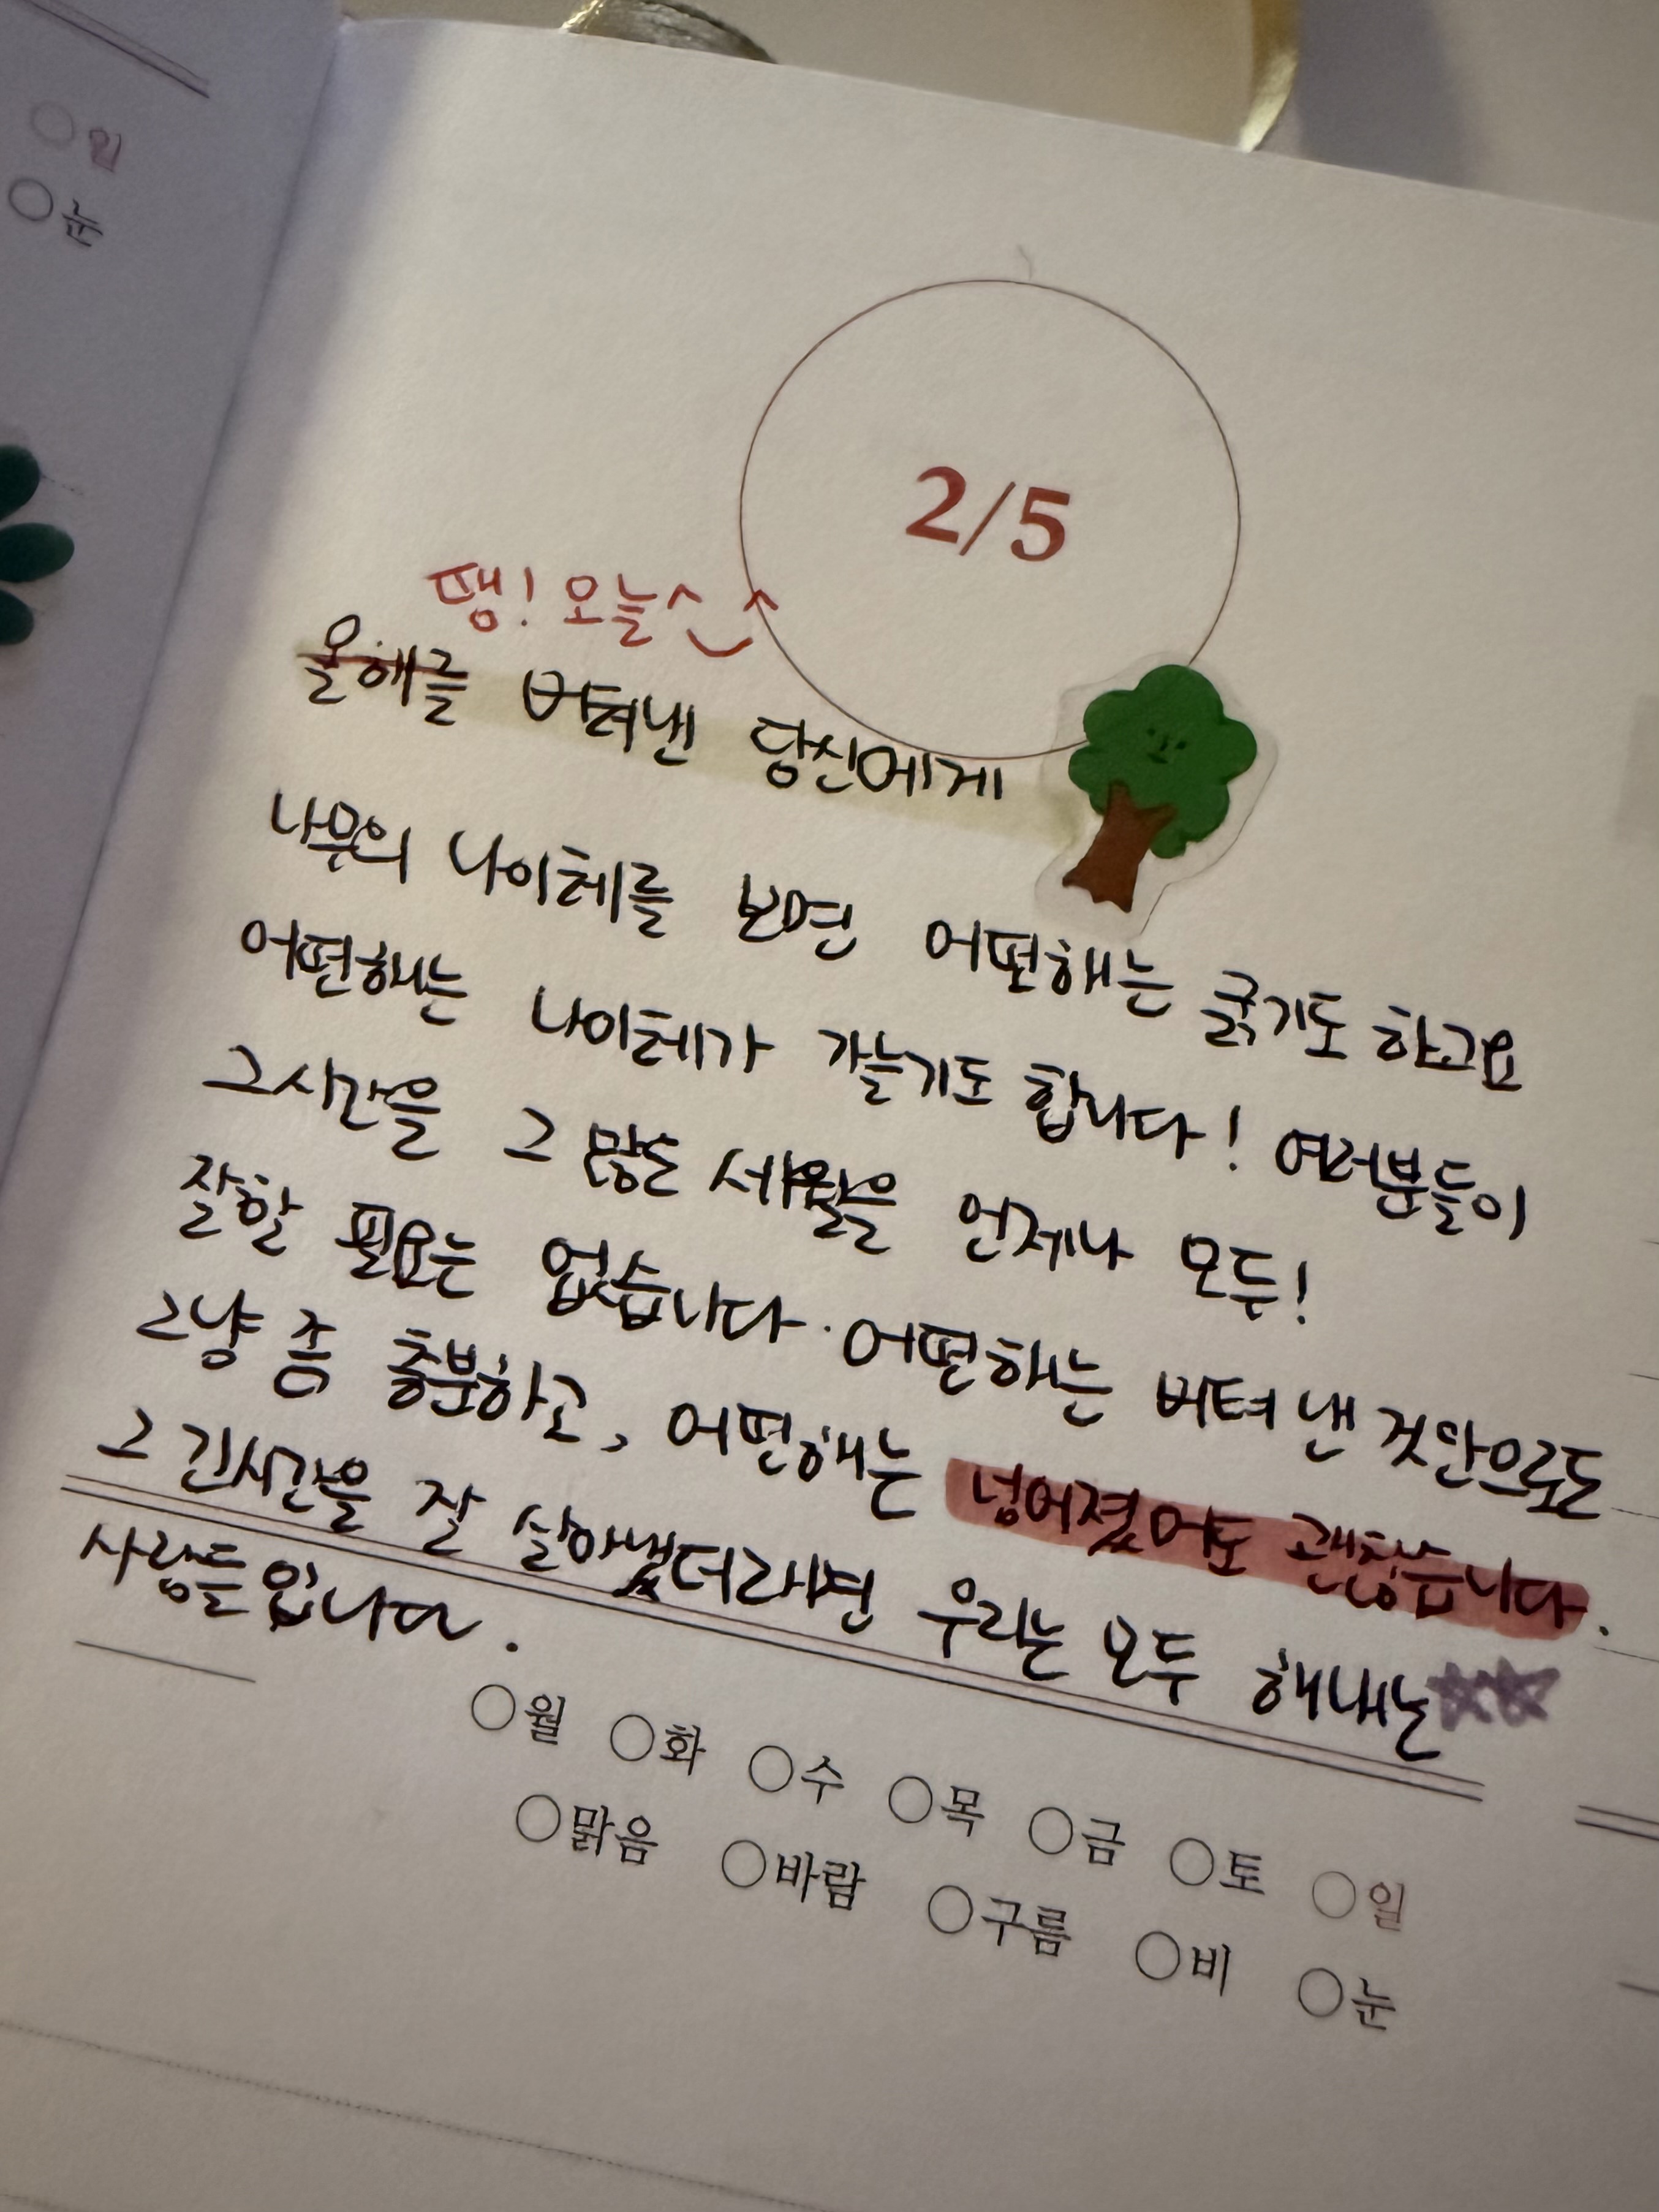 일
눈
2/5
땡! 오늘^‿^
올해를 버텨낸 당신에게
나무의 나이체를 보면 어떤해는 굵기도 하고요
어떤해는 나이테가 가늘기도 합니다! 여러분들이
그시간을 그 많은 세월을 언제나 모두!
잘할 필요는 없습니다. 어떤해는 버텨 낸 것만으로도
그냥 좀 충분하고, 어떤해는 넘어졌어도 괜찮습니다.
그 긴시간을 잘 살아냈더래면 우리는 모두 해내는
사람들입니다.
월 화 수 목 금 토 일
맑음 바람 구름 비 눈